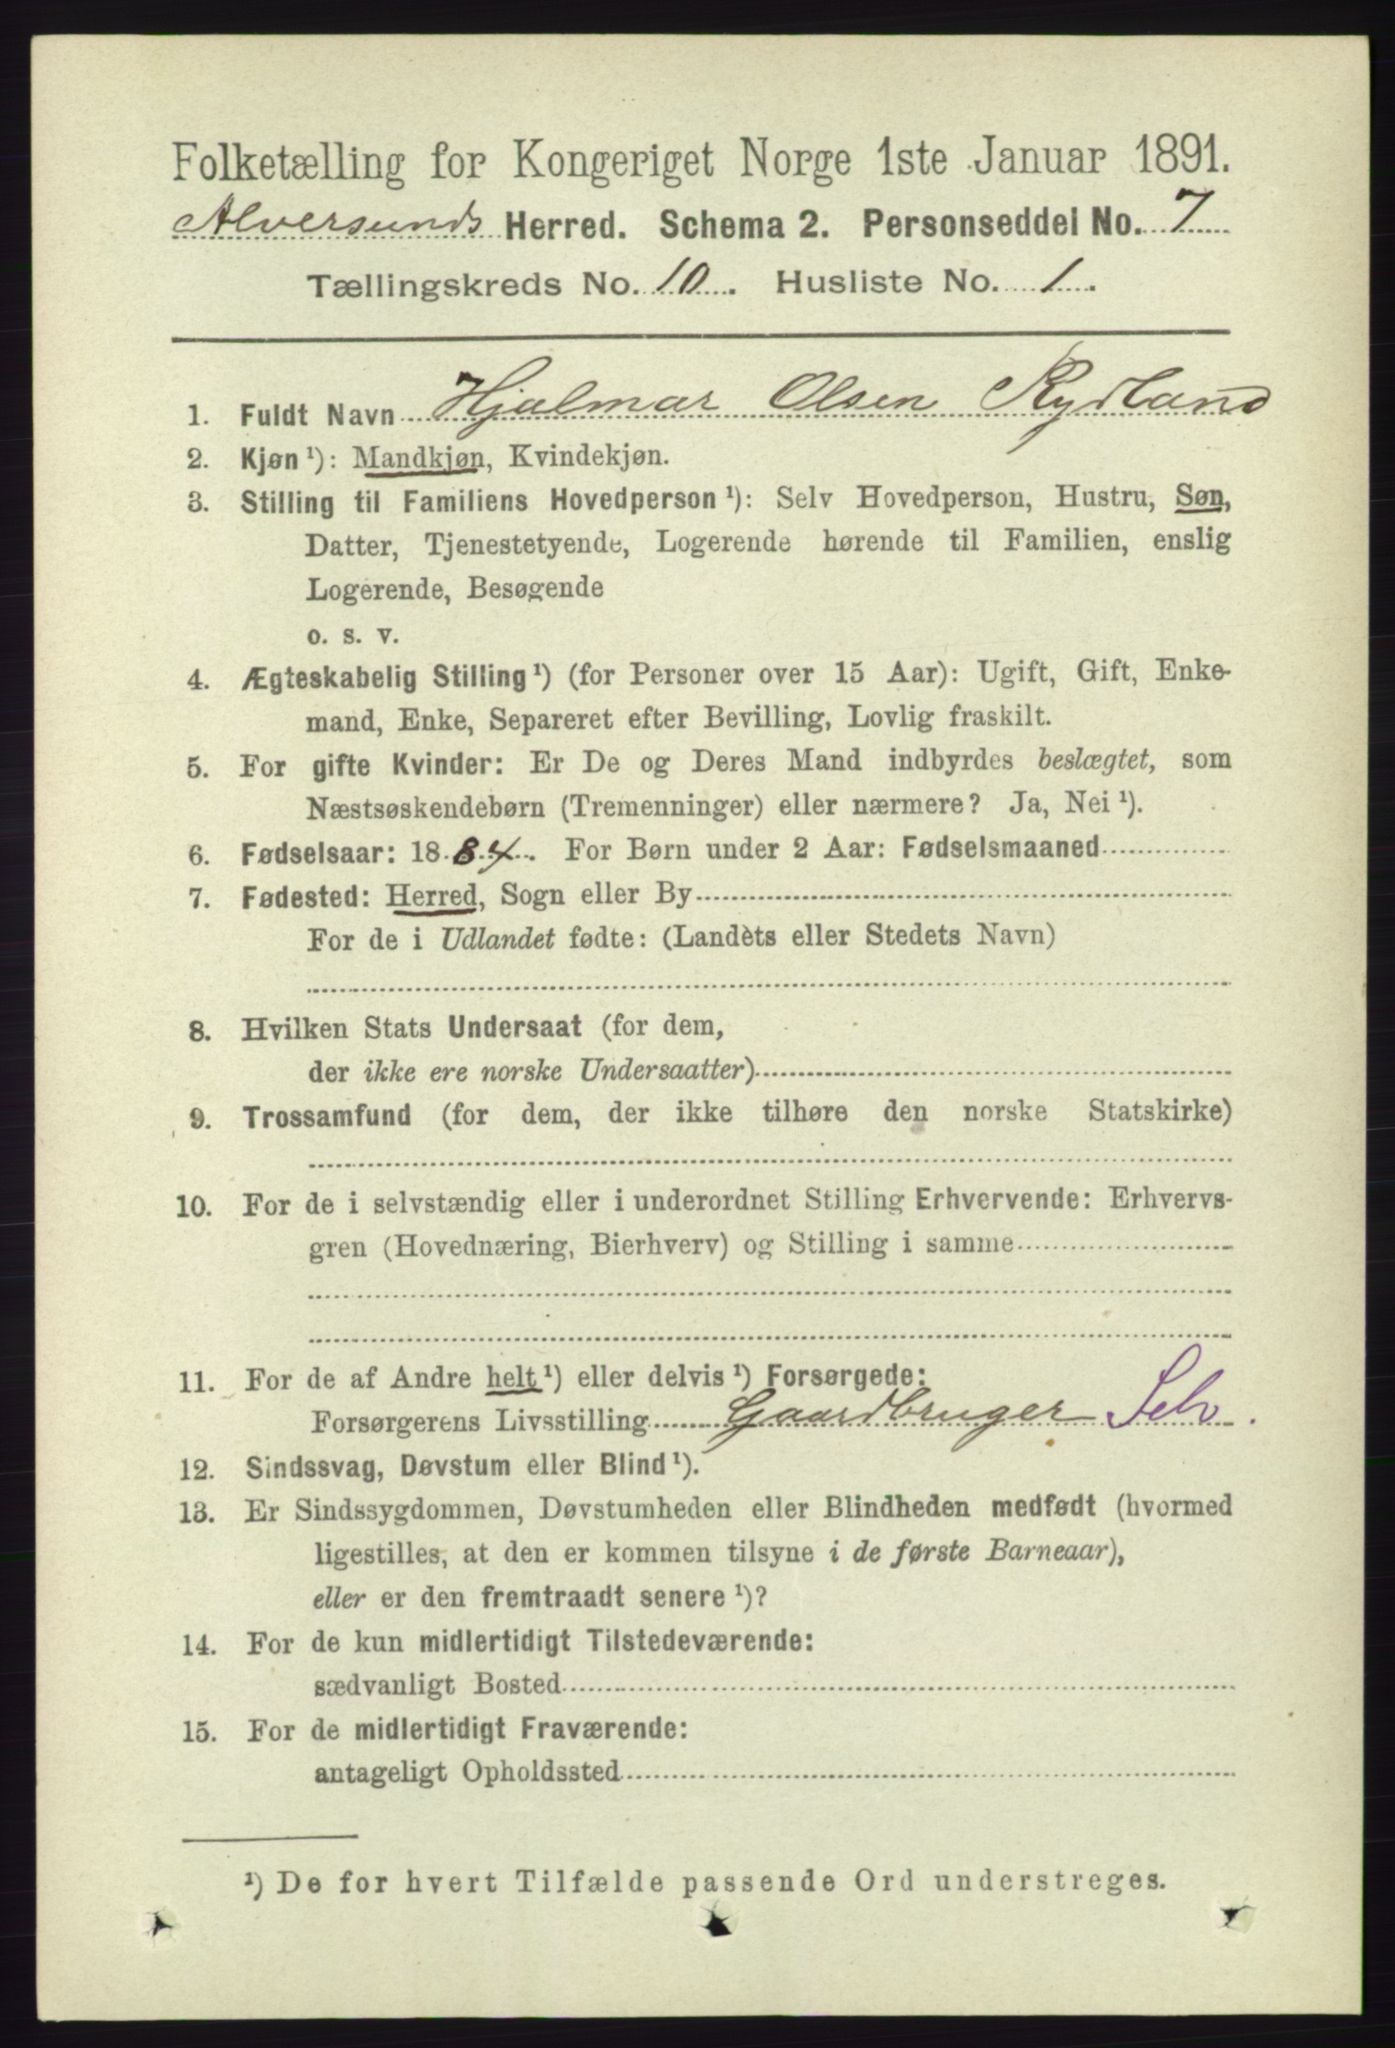 Folketælling for Kongeriget Norge 1ste Januar 1891.
Alversunds Herred. Schema 2. Personseddel No. 7
Tællingskreds No. 10. Husliste No. 1.
1. Fuldt Navn Hjalmar Olsen Rydland
2. Kjøn ¹): Mandkjøn, Kvindekjøn.
3. Stilling til Familiens Hovedperson ¹): Selv Hovedperson, Hustru, Søn,
Datter, Tjenestetyende, Logerende hørende til Familien, enslig
Logerende, Besøgende
o. s. v.
4. Ægteskabelig Stilling ¹) (for Personer over 15 Aar): Ugift, Gift, Enke-
mand, Enke, Separeret efter Bevilling, Lovlig fraskilt.
5. For gifte Kvinder: Er De og Deres Mand indbyrdes beslægtet, som
Næstsøskendebørn (Tremenninger) eller nærmere? Ja, Nei ¹).
6. Fødselsaar: 1884. For Børn under 2 Aar: Fødselsmaaned
7. Fødested: Herred, Sogn eller By
For de i Udlandet fødte: (Landèts eller Stedets Navn)
8. Hvilken Stats Undersaat (for dem,
der ikke ere norske Undersaatter)
9. Trossamfund (for dem, der ikke tilhøre den norske Statskirke)
10. For de i selvstændig eller i underordnet Stilling Erhvervende: Erhvervs-
gren (Hovednæring, Bierhverv) og Stilling i samme
11. For de af Andre helt ¹) eller delvis ¹) Forsørgede:
Forsørgerens Livsstilling Gaardbruger Selv.
12. Sindssvag, Døvstum eller Blind ¹).
13. Er Sindssygdommen, Døvstumheden eller Blindheden medfødt (hvormed
ligestilles, at den er kommen tilsyne i de første Barneaar),
eller er den fremtraadt senere ¹)?
14. For de kun midlertidigt Tilstedeværende:
sædvanligt Bosted
15. For de midlertidigt Fraværende:
antageligt Opholdssted
¹) De for hvert Tilfælde passende Ord understreges.